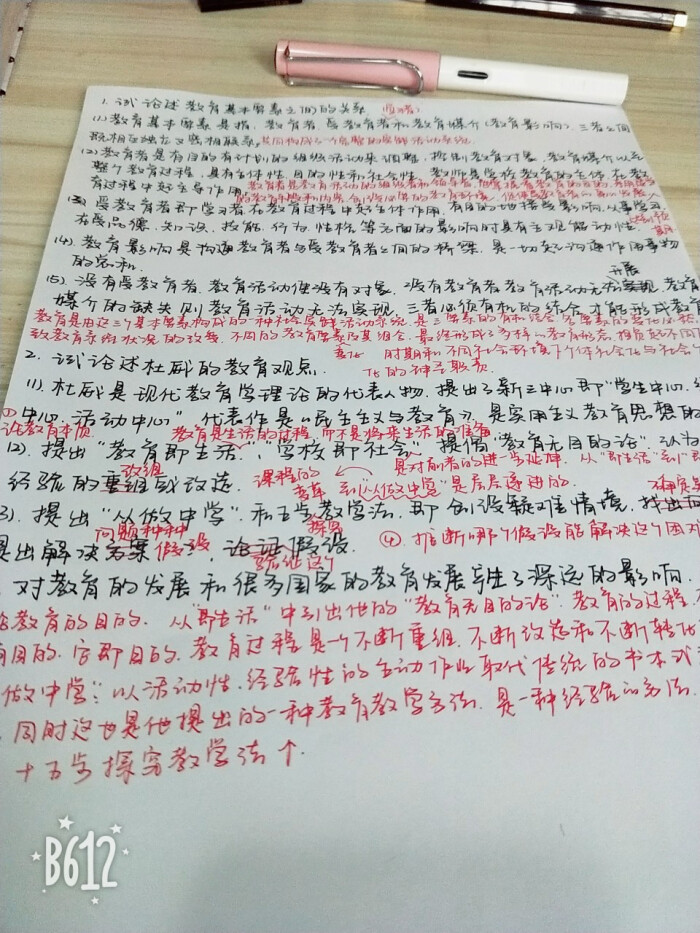 1. 试论述教育基本要素之间的关系.
(1) 教育基本要素是指, 教育者, 受教育者和教育媒介(教育影响), 三者之间
既相互独立又紧相联系, 共同构成一个完整的实践活动系统.
(2) 教育者是有目的有计划的组织活动来调整, 控制教育对象, 教育媒介以至
整个教育过程, 具有主体性, 目的性和社会性, 教师是学校教育的主体, 在教
育过程中起主导作用.
(3) 受教育者即学习者在教育过程中起主体作用, 有目的地接受影响, 从事学习,
在受品德, 知识, 技能, 行为, 性格等方面的影响时具有主观能动性.
(4) 教育影响是沟通教育者与受教育者之间的桥梁, 是一切起沟通作用事物
的总和.
开展
(5) 没有受教育者, 教育活动便没有对象, 没有教育者教育活动无法实现, 教育
媒介的缺失则教育活动无法实现, 三者必须有机的结合才能形成教育
教育是由这三个基本要素构成的一种社会实践活动系统, 是三要素的有机结合,
变化
2. 试论述杜威的教育观点.
(1). 杜威是现代教育学理论的代表人物, 提出了新三中心即"学生中心,
中心, 活动中心" 代表作是《民主主义与教育》, 是实用主义教育思想的
① 论教育本质. 教育是生活的过程, 而不是将来生活的准备
(2). 提出"教育即生活", "学校即社会", 提倡"教育无目的论", 认为
改组
经验的重组或改造.
课程的变革
是对前者的进一步延伸, 从"即生活"到"即
到"以做中学"是层层递进的.
(3). 提出"从做中学"和五步教学法, 即创设疑难情境, 找出问
问题种种
提出解决方案 假设, 论证假设.
验证这个
④. 推断哪个假设能解决这个困难
对教育的发展和很多国家的教育发展产生了深远的影响.
论教育的目的. 从"即生活"中引出他的"教育无目的论". 教育的过程
有目的, 它即目的. 教育过程是一个不断重组, 不断改造和不断转化
做中学": 以活动性, 经验性的主动作业取代传统的书本式
同时这也是他提出的一种教育教学方法, 是一种经验的方法
+ 五步探究教学法 ↑.
B612